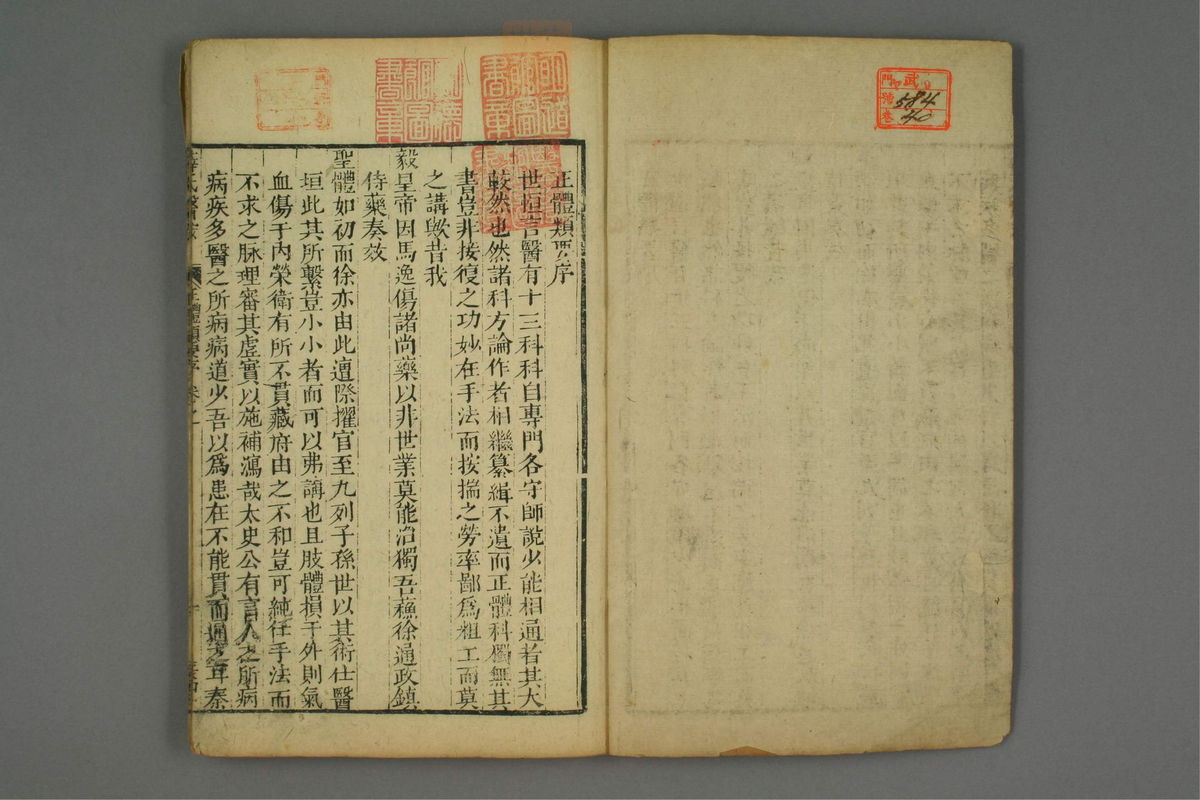 武
門
號
卷
584
40
正體類要序
世恒言醫有十三科科自專門各守師說少能相通者其大
較然也然諸科方論作者相繼纂緝不遺而正體科獨無其
書豈非接復之功妙在手法而按揣之勞率鄙爲粗工而莫
之講歟昔我
毅皇帝因馬逸傷諸尚藥以非世業莫能治獨吾蘓徐通政鎮
侍藥奏效
聖體如初而徐亦由此遭際擢官至九列子孫世以其術仕醫
垣此其所繫豈小小者而可以弗講也且肢體損于外則氣
血傷于内榮衛有所不貫藏府由之不和豈可純任手法而
不求之脉理審其虛實以施補瀉哉太史公有言人之所病
病疾多醫之所病病道少吾以爲患在不能貫而通之耳秦